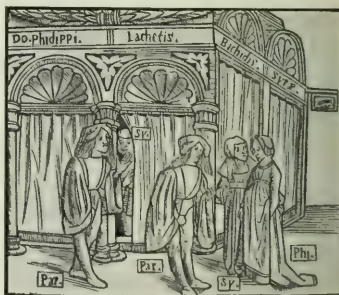 Do. Phidippi.
Lachetis.
Bachidis. & Syre.
Sy.
Par.
Par.
Sy.
Phi.